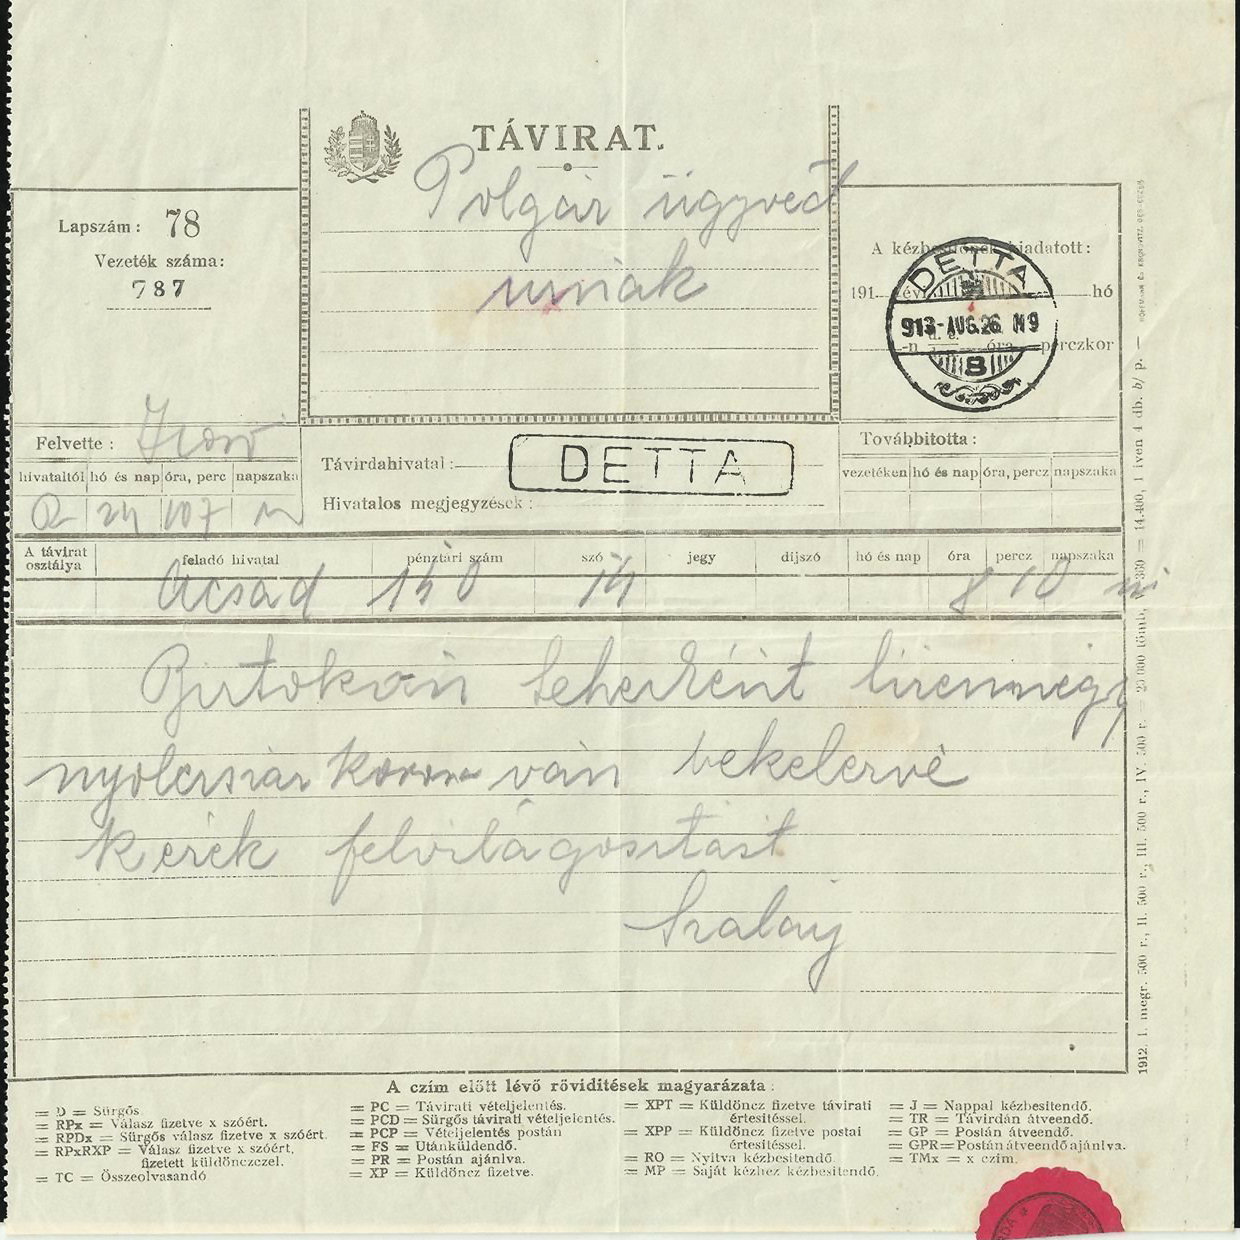 TÁVIRAT.
Polgár ügyvéd
urnak
Lapszám: 78
Vezeték száma:
787
A kézbesítőnek kiadatott:
191 évi hó
-n d. e. óra perczkor
DETTA
913-AUG.26. N9
8
Felvette:
hivataltól hó és nap óra, perc napszaka
24 107
Távirdahivatal: DETTA
Hivatalos megjegyzések:
Továbbitotta:
vezetéken hó és nap óra, percz napszaka
A távirat osztálya feladó hivatal pénztári szám szó jegy dijszó hó és nap óra percz napszaka
Acsád 150 14 8 10
Birtokán
nyolcszáz korona ván bekelerve
kérek felvilágositást
Szalay
A czím előtt lévő röviditések magyarázata:
= D = Sürgős.
= RPx = Válasz fizetve x szóért.
= RPDx = Sürgős válasz fizetve x szóért.
= RPxRXP = Válasz fizetve x szóért,
fizetett küldönczczel.
= TC = Összeolvasandó
= PC = Távirati vételjelentés.
= PCD = Sürgős távirati vételjelentés.
= PCP = Vételjelentés postán
= FS = Utánküldendő.
= PR = Postán ajánlva.
= XP = Küldöncz fizetve.
= XPT = Küldöncz fizetve távirati
értesitéssel.
= XPP = Küldöncz fizetve postai
értesitéssel.
= RO = Nyitva kézbesitendő.
= MP = Saját kézhez kézbesitendő.
= J = Nappal kézbesitendő.
= TR = Távirdán átveendő.
= GP = Postán átveendő.
= GPR = Postán átveendő ajánlva.
= TMx = x czim.